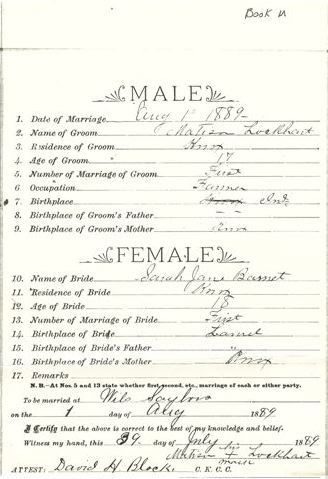 Book N
MALE
1. Date of Marriage Aug 1st 1889
2. Name of Groom Matison Lockhart
3. Residence of Groom Knox
4. Age of Groom 17
5. Number of Marriage of Groom First
6. Occupation Farmer
7. Birthplace Knox Ind.
8. Birthplace of Groom's Father — —
9. Birthplace of Groom's Mother Knox
FEMALE
10. Name of Bride Sarah Jane Barnet
11. Residence of Bride Knox
12. Age of Bride 18
13. Number of Marriage of Bride First
14. Birthplace of Bride Laurel
15. Birthplace of Bride's Father "
16. Birthplace of Bride's Mother Knox
17. Remarks
N. B.—At Nos. 5 and 13 state whether first, second, etc., marriage of each or either party.
To be married at Wils
on the 1 day of Aug 1889
I Certify that the above is correct to the best of my knowledge and belief.
Witness my hand, this 39 day of July 1889
his
Matison + Lockhart
mark
ATTEST: David H Block C. K. C. C.